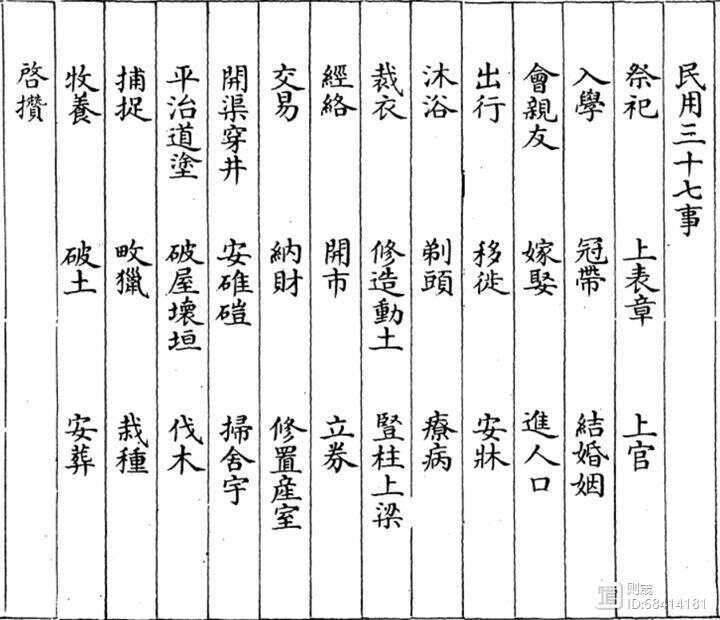 民用三十七事
祭祀 上表章 上官
入學 冠帶 結婚姻
會親友 嫁娶 進人口
出行 移徙 安牀
沐浴 剃頭 療病
裁衣 修造動土 豎柱上梁
經絡 開市 立券
交易 納財 修置產室
開渠穿井 安碓磑 掃舍宇
平治道塗 破屋壞垣 伐木
捕捉 畋獵 栽種
牧養 破土 安葬
啓攢
则葳
ID:68414181